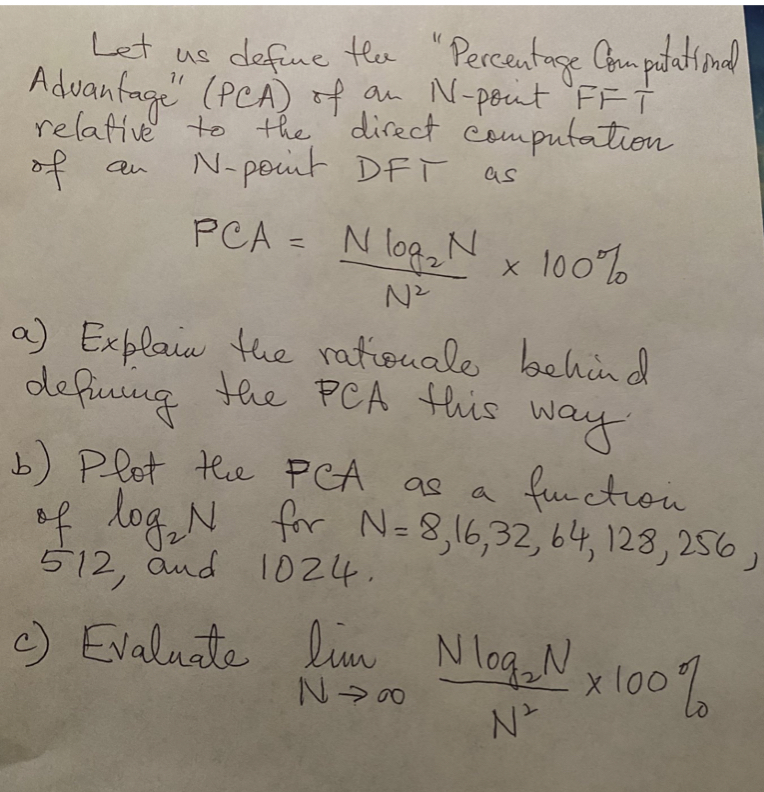 Let us define the "Percentage Computational
Advantage" (PCA) of an N-point FFT
relative to the direct computation
of an N-point DFT as
PCA = N log₂N / N² × 100%
a) Explain the rationale behind
defining the PCA this way.
b) Plot the PCA as a function
of log₂N for N=8,16,32,64,128,256,
512, and 1024.
c) Evaluate lim N→∞ N log₂N / N² × 100%